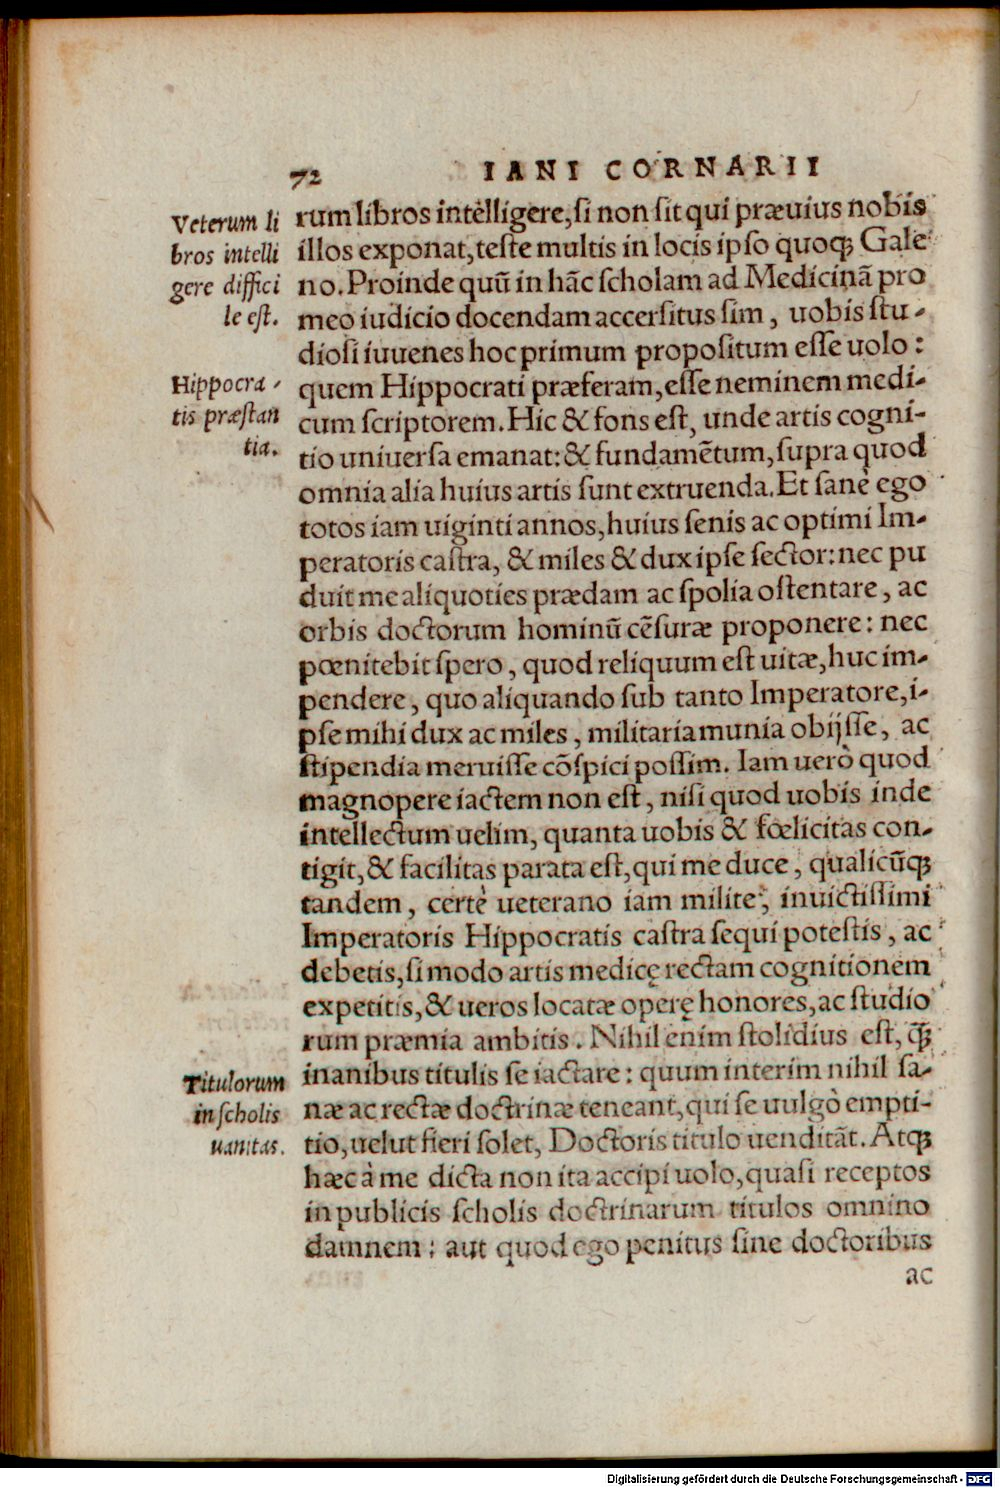 72 IANI CORNARII
Veterum li
bros intelli
gere diffici
le est.
Hippocra-
tis præstan
tia.
Titulorum
in scholis
uanitas.
rum libros intelligere, si non sit qui præuius nobis
illos exponat, teste multis in locis ipso quoqꝫ Gale
no. Proinde quũ in hãc scholam ad Medicinã pro
meo iudicio docendam accersitus sim, uobis stu-
diosi iuuenes hoc primum propositum esse uolo:
quem Hippocrati præferam, esse neminem medi-
cum scriptorem. Hic & fons est, unde artis cogni-
tio uniuersa emanat: & fundamẽtum, supra quod
omnia alia huius artis sunt extruenda. Et sanè ego
totos iam uiginti annos, huius senis ac optimi Im-
peratoris castra, & miles & dux ipse sector: nec pu
duit me aliquoties prædam ac spolia ostentare, ac
orbis doctorum hominũ cẽsuræ proponere: nec
pœnitebit spero, quod reliquum est uitæ, huc im-
pendere, quo aliquando sub tanto Imperatore, i-
pse mihi dux ac miles, militaria munia obijsse, ac
stipendia meruisse cõspici possim. Iam uerò quod
magnopere iactem non est, nisi quod uobis inde
intellectum uelim, quanta uobis & fœlicitas con-
tigit, & facilitas parata est, qui me duce, qualicũqꝫ
tandem, certè ueterano iam milite, inuictissimi
Imperatoris Hippocratis castra sequi potestis, ac
debetis, si modo artis medicę rectam cognitionem
expetitis, & ueros locatæ operę honores, ac studio
rum præmia ambitis. Nihil enim stolidius est, q̃ꝫ
inanibus titulis se iactare: quum interim nihil sa-
næ ac rectæ doctrinæ teneant, qui se uulgò empti-
tio, uelut fieri solet, Doctoris titulo uenditãt. Atqꝫ
hæc à me dicta non ita accipi uolo, quasi receptos
in publicis scholis doctrinarum titulos omnino
damnem: aut quod ego penitus sine doctoribus
ac
Digitalisierung gefördert durch die Deutsche Forschungsgemeinschaft - DFG